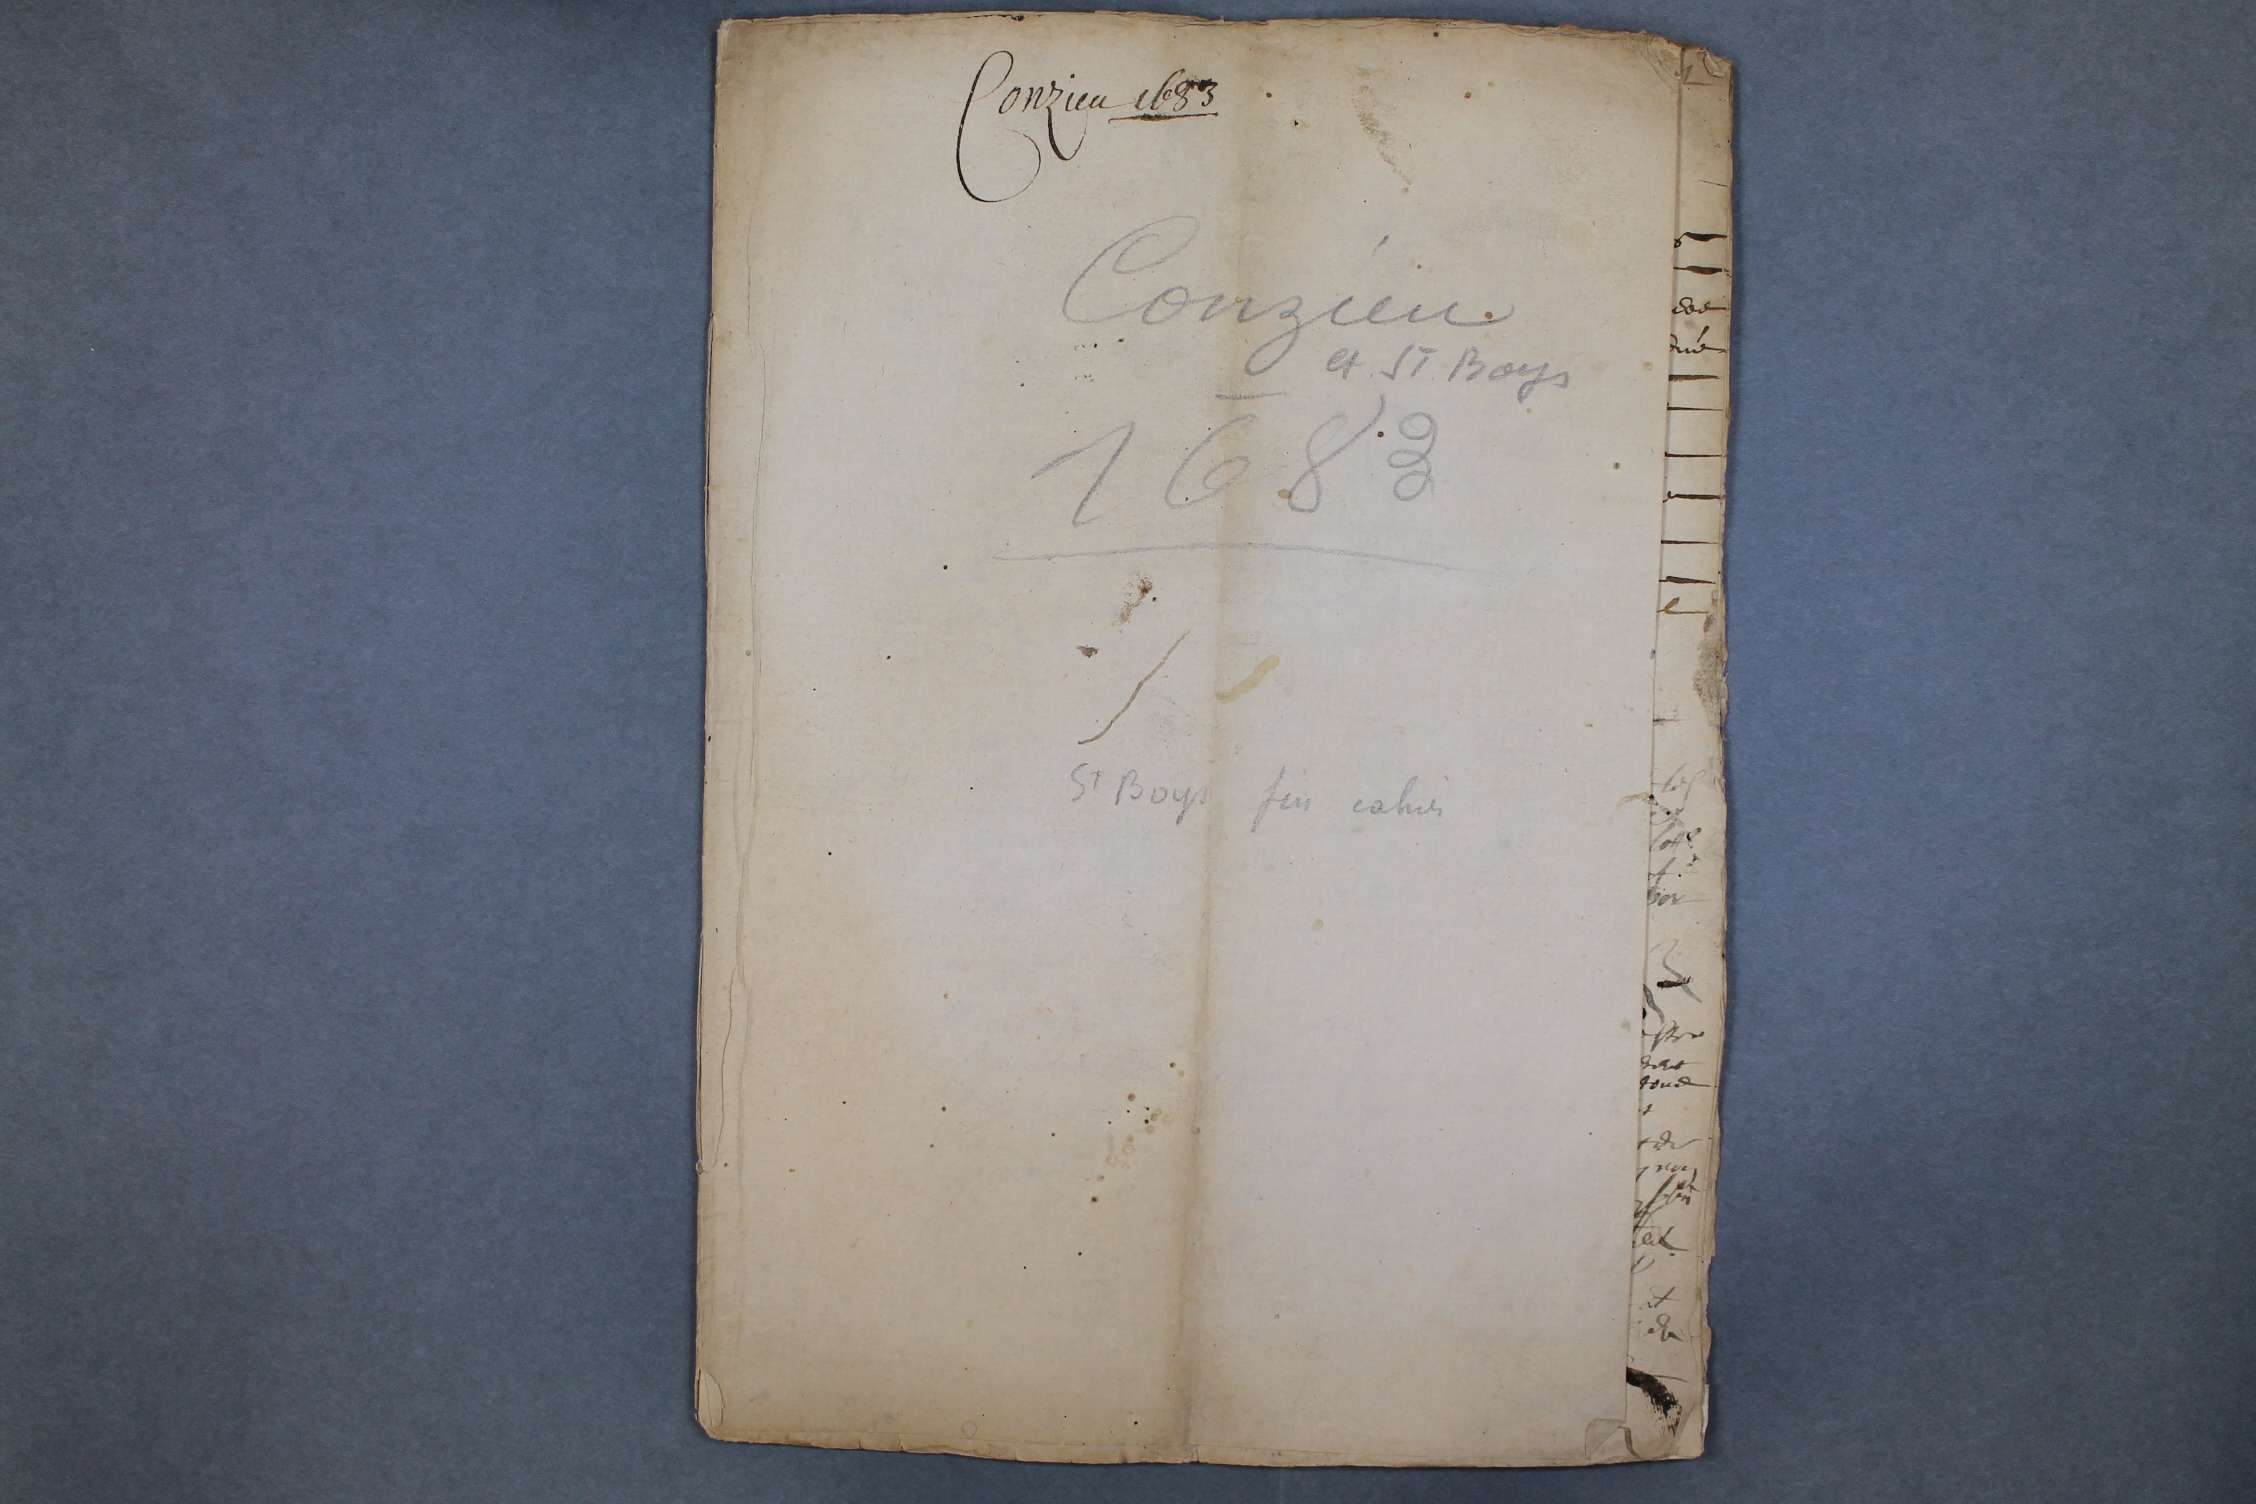 Conzieu 1683
Conzieu
et St Boys
1683
St Boys fin cahier